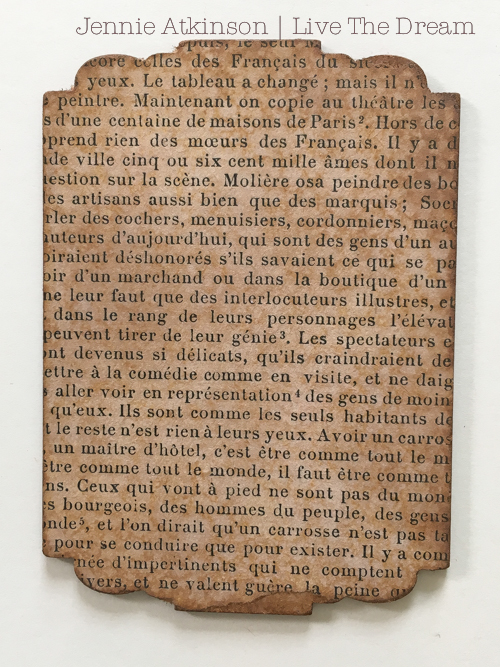 Jennie Atkinson | Live The Dream
puis, le seul M
core celles des Français du
yeux. Le tableau a changé ; mais il n'
peintre. Maintenant on copie au théâtre les
s d'une centaine de maisons de Paris². Hors de c
prend rien des mœurs des Français. Il y a d
de ville cinq ou six cent mille âmes dont il n
estion sur la scène. Molière osa peindre des bo
es artisans aussi bien que des marquis ; Socr
rler des cochers, menuisiers, cordonniers, maço
auteurs d'aujourd'hui, qui sont des gens d'un au
oiraient déshonorés s'ils savaient ce qui se pa
oir d'un marchand ou dans la boutique d'un
ne leur faut que des interlocuteurs illustres, et
dans le rang de leurs personnages l'élévat
peuvent tirer de leur génie³. Les spectateurs e
nt devenus si délicats, qu'ils craindraient de
ettre à la comédie comme en visite, et ne daig
aller voir en représentation⁴ des gens de moin
qu'eux. Ils sont comme les seuls habitants de
t le reste n'est rien à leurs yeux. Avoir un carros
un maître d'hôtel, c'est être comme tout le m
être comme tout le monde, il faut être comme t
ns. Ceux qui vont à pied ne sont pas du mon
s bourgeois, des hommes du peuple, des gens
onde⁵, et l'on dirait qu'un carrosse n'est pas ta
pour se conduire que pour exister. Il y a com
née d'impertinents qui ne comptent
ivers, et ne valent guère la peine qu